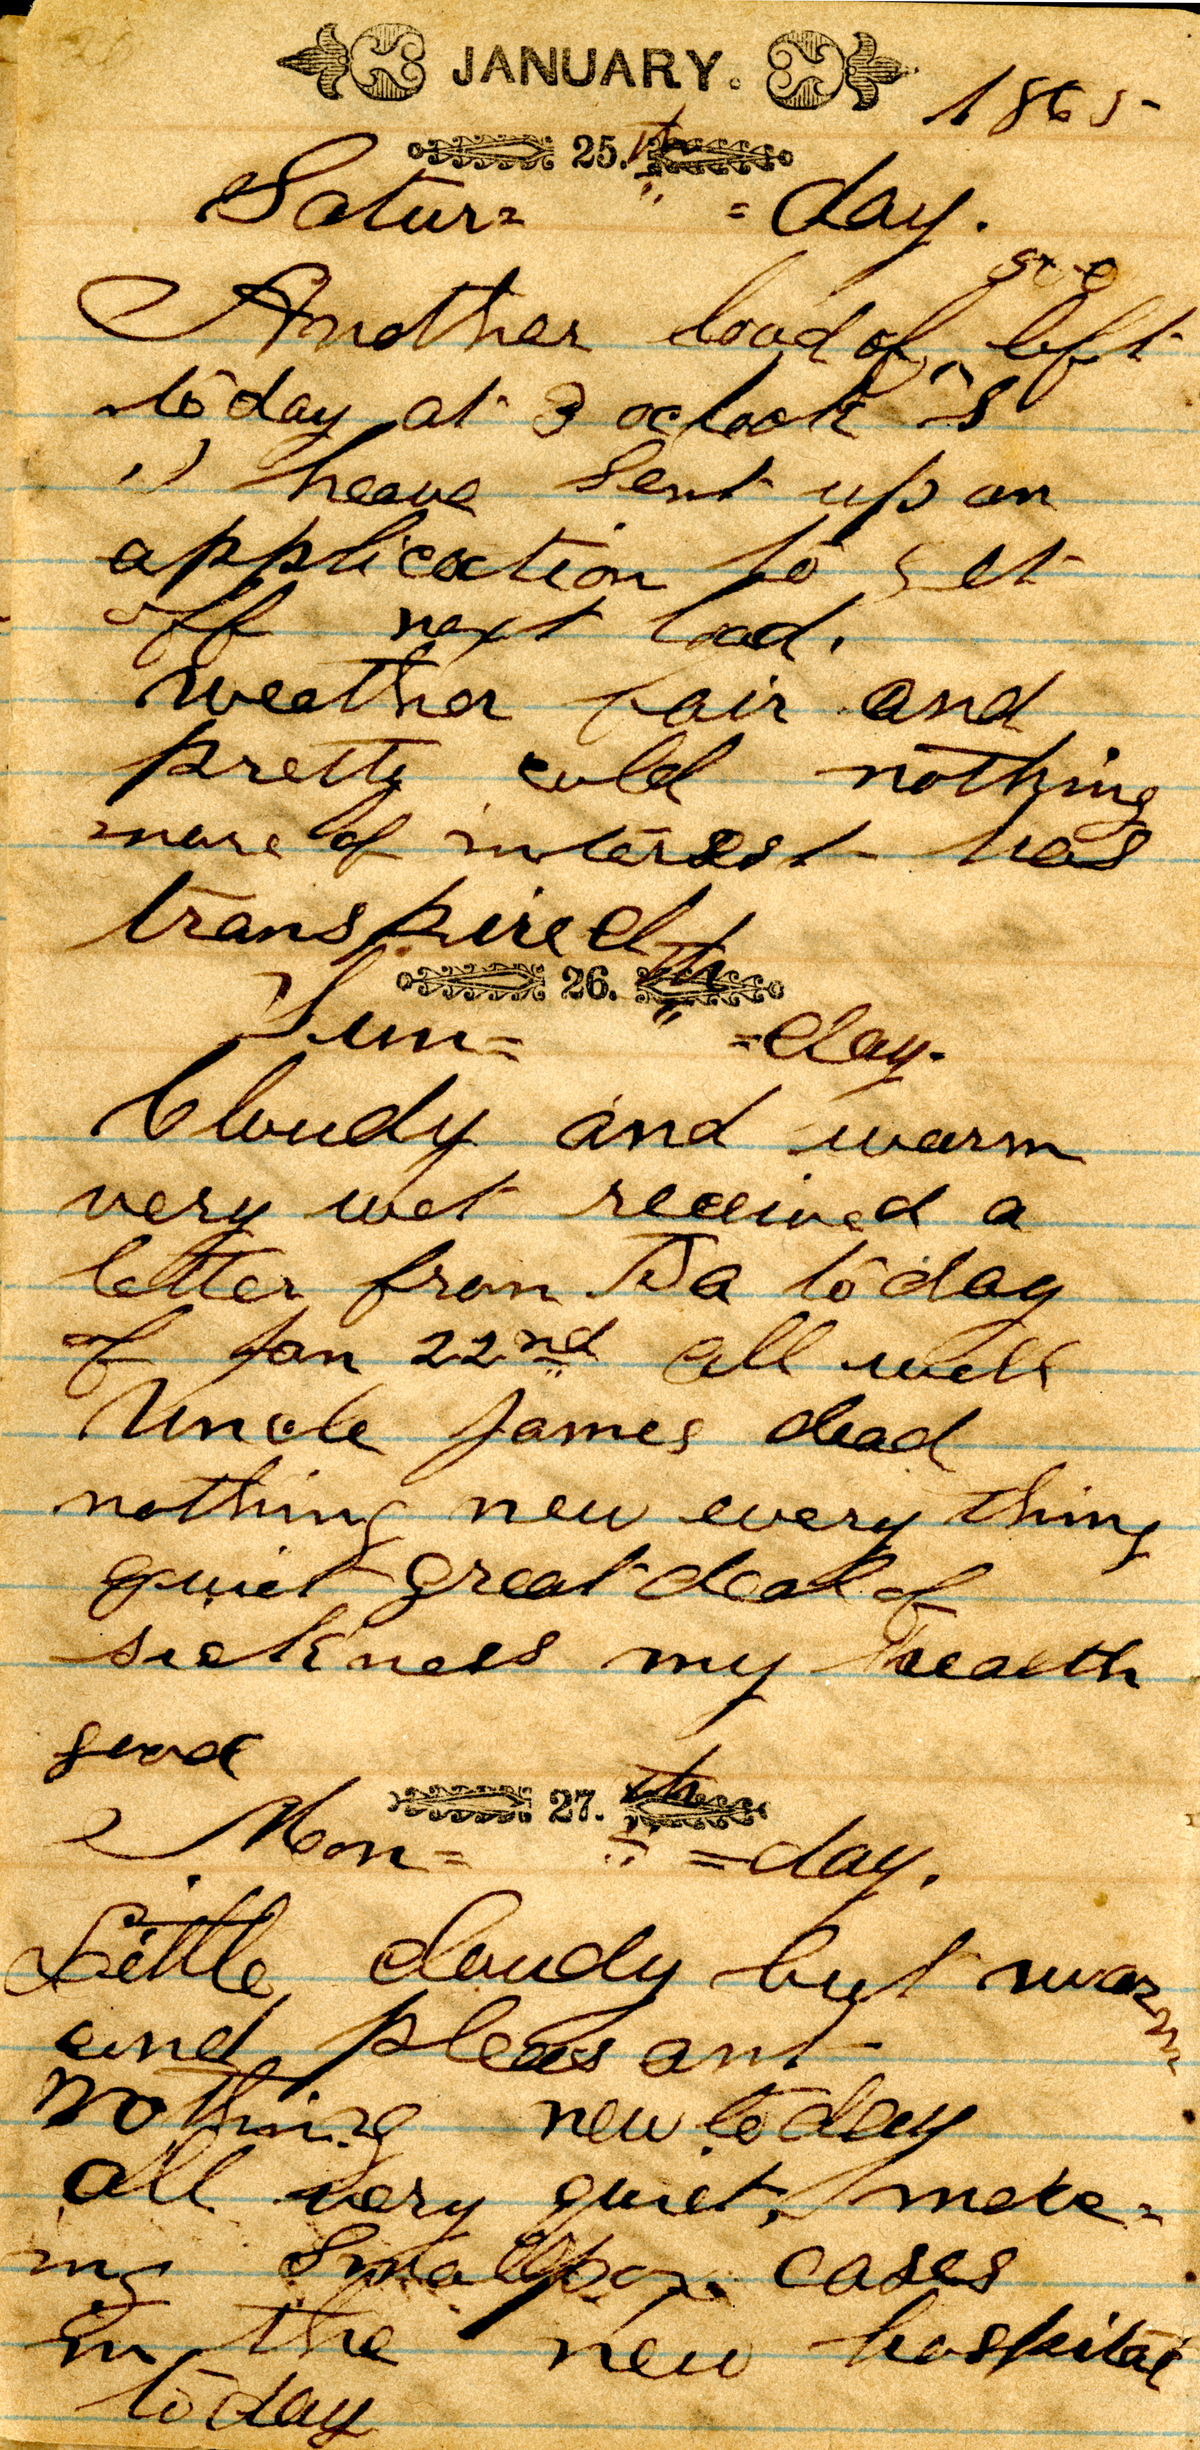 JANUARY. 1865
25.th
Satur= " =day.
500
Another load of ^ left
today at 3 oclock
I heave sent up an
application to get
off next load.
Weather fair and
pretty cold nothing
more of interest has
transpired
26.th
Sun= " =day.
Cloudy and warm
very wet received a
letter from Pa today
of Jan 22nd all well
Uncle James dead
nothing new every thing
quiet great deal of
sickness my health
good
27.th
Mon= " =day.
Little cloudy but warm
and pleasant
Nothing new today
all very quiet,
ing Smallpox cases
in the new hospital
today